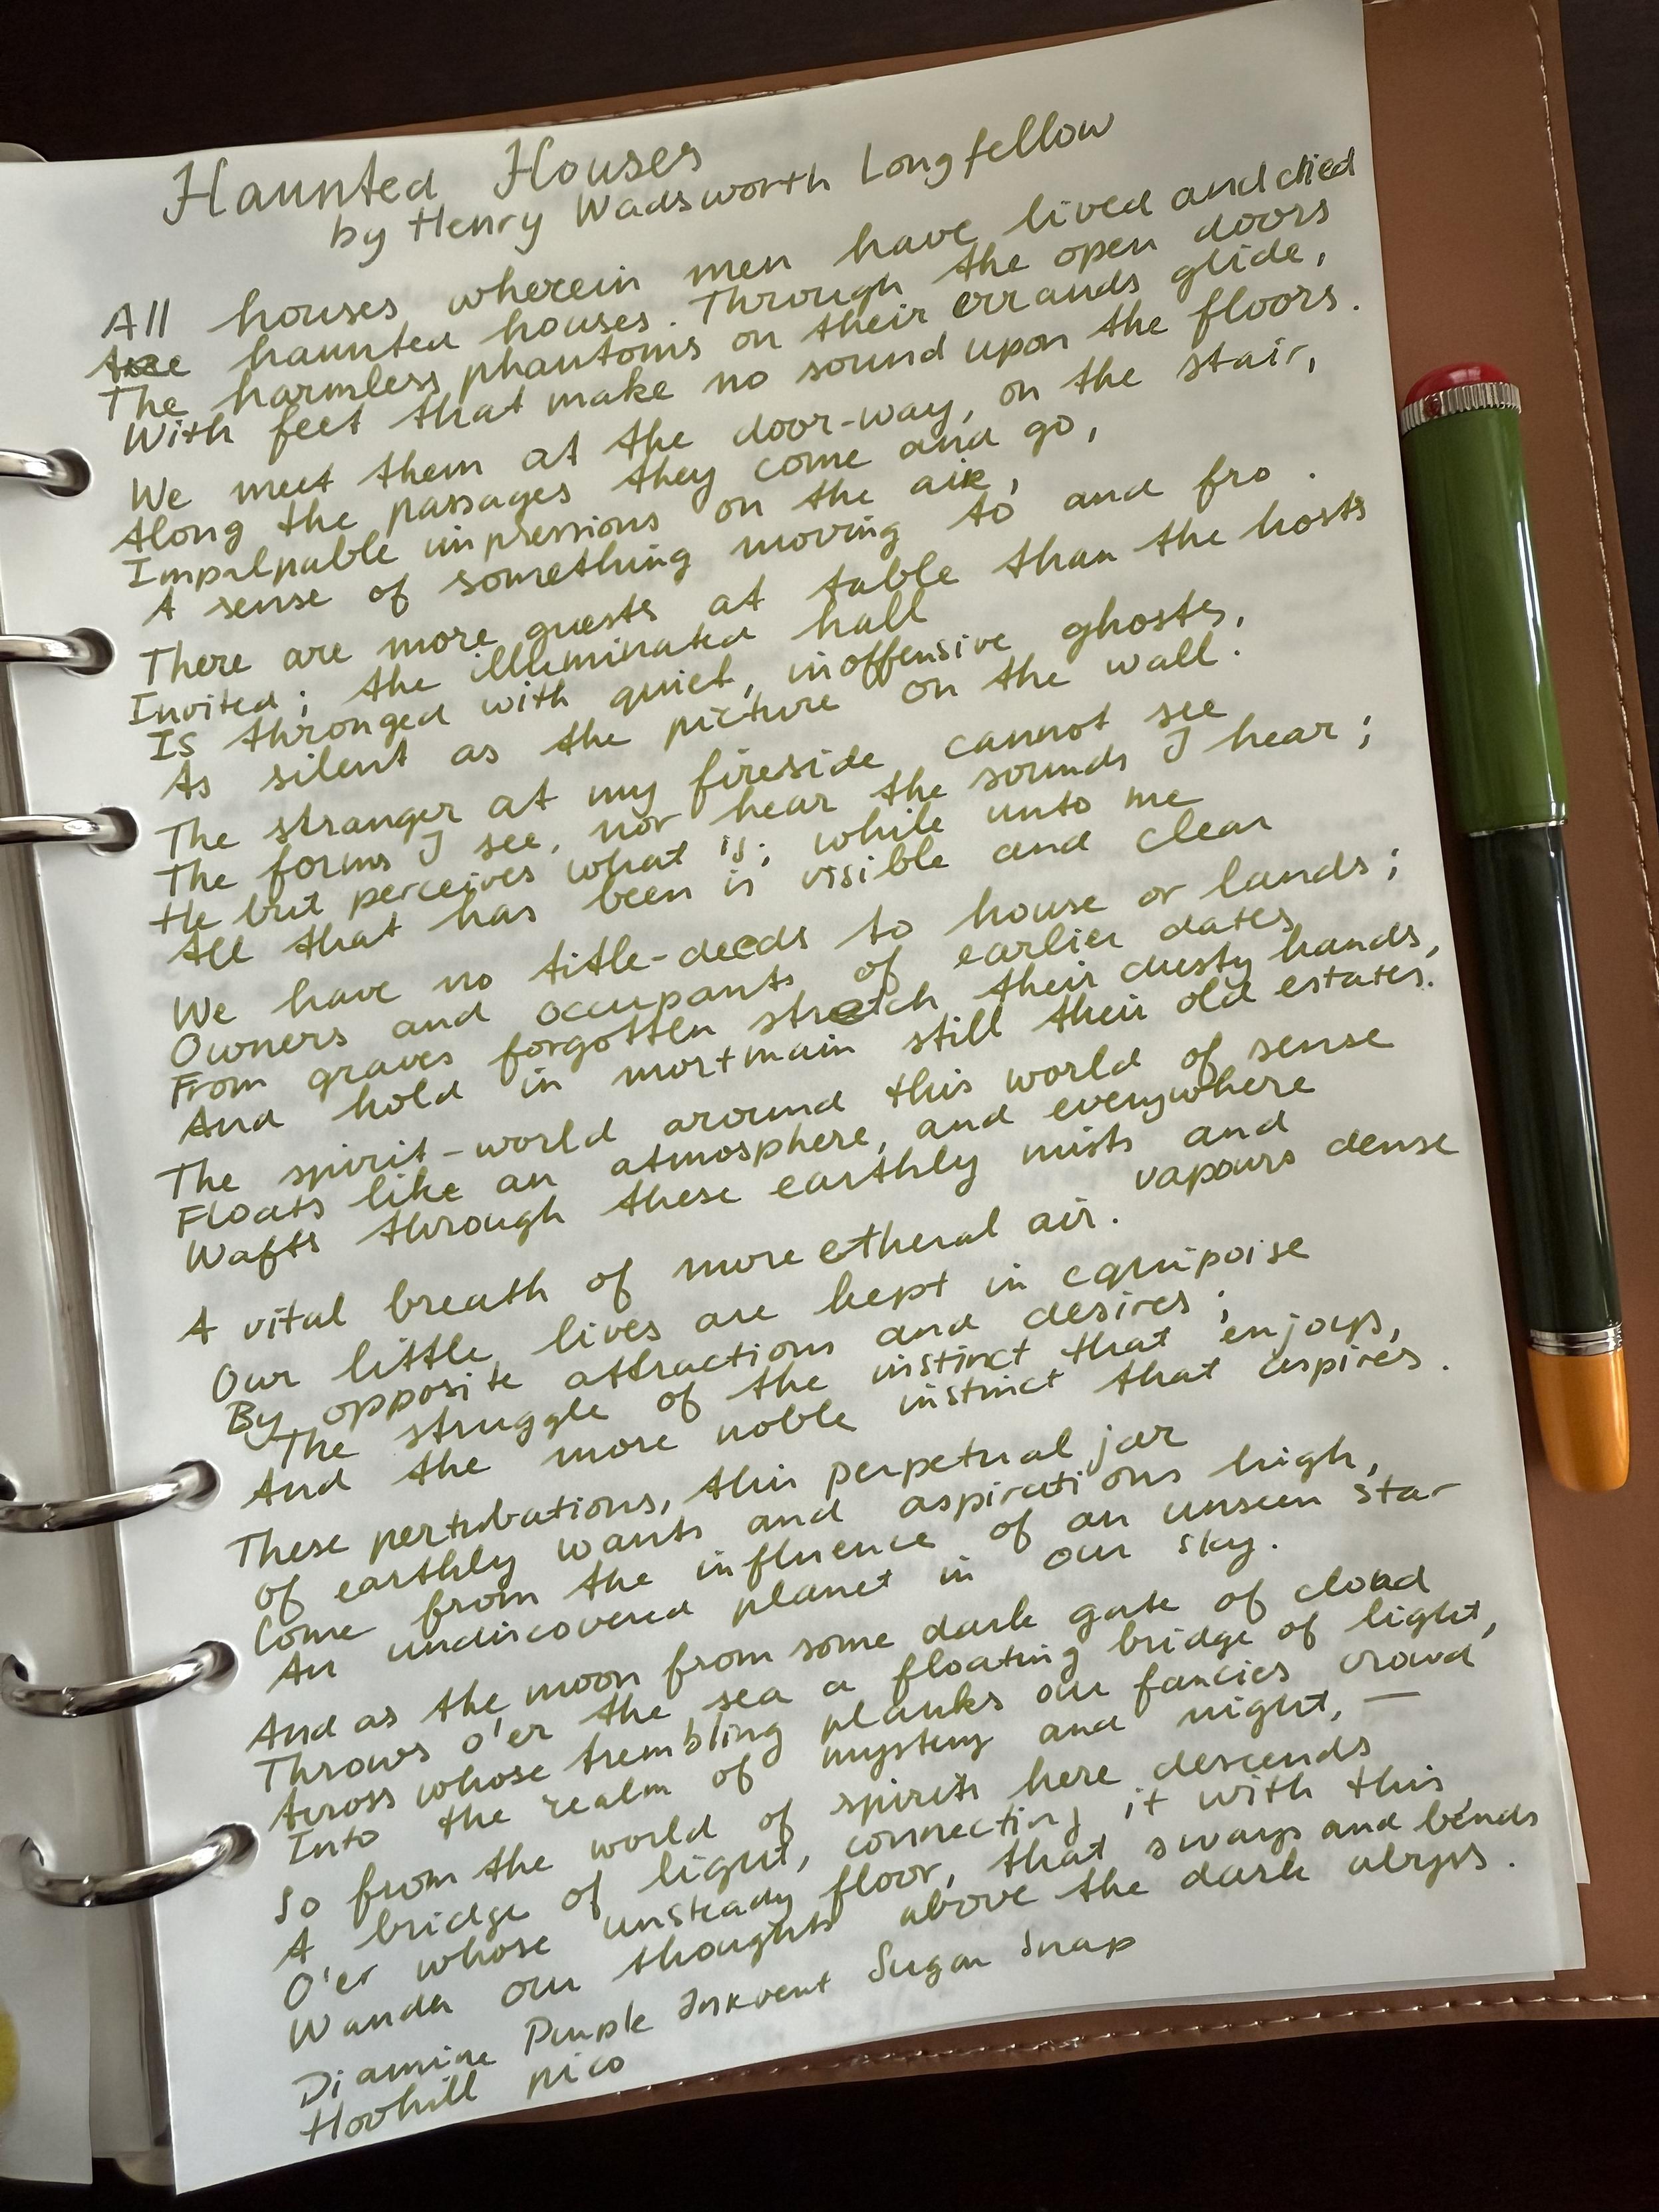 Haunted Houses
by Henry Wadsworth Longfellow
All houses wherein men have lived and died
Are haunted houses. Through the open doors
The harmless phantoms on their errands glide,
With feet that make no sound upon the floors.
We meet them at the door-way, on the stair,
Along the passages they come and go,
Impalpable impressions on the air,
A sense of something moving to and fro.
There are more guests at table than the hosts
Invited; the illuminated hall
Is thronged with quiet, inoffensive ghosts,
As silent as the picture on the wall.
The stranger at my fireside cannot see
The forms I see, nor hear the sounds I hear;
He but perceives what is; while unto me
All that has been is visible and clear
We have no title-deeds to house or lands;
Owners and occupants of earlier dates
From graves forgotten stretch their dusty hands,
And hold in mortmain still their old estates.
The spirit-world around this world of sense
Floats like an atmosphere, and everywhere
Wafts through these earthly mists and
vapours dense
A vital breath of more etheral air.
Our little lives are kept in equipoise
By opposite attractions and desires;
The struggle of the instinct that enjoys,
And the more noble instinct that aspires.
These pertubations, this perpetual jar
of earthly wants and aspirations high,
Come from the influence of an unseen star
An undiscovered planet in our sky.
And as the moon from some dark gate of cloud
Throws o'er the sea a floating bridge of light,
Across whose trembling planks our fancies crowd
Into the realm of mystery and night, —
So from the world of spirits here descends
A bridge of light, connecting it with this
O'er whose unsteady floor, that sways and bends
Wander our thoughts above the dark abyss.
Diamine Purple Inkvent Sugar Snap
Hovhill pico